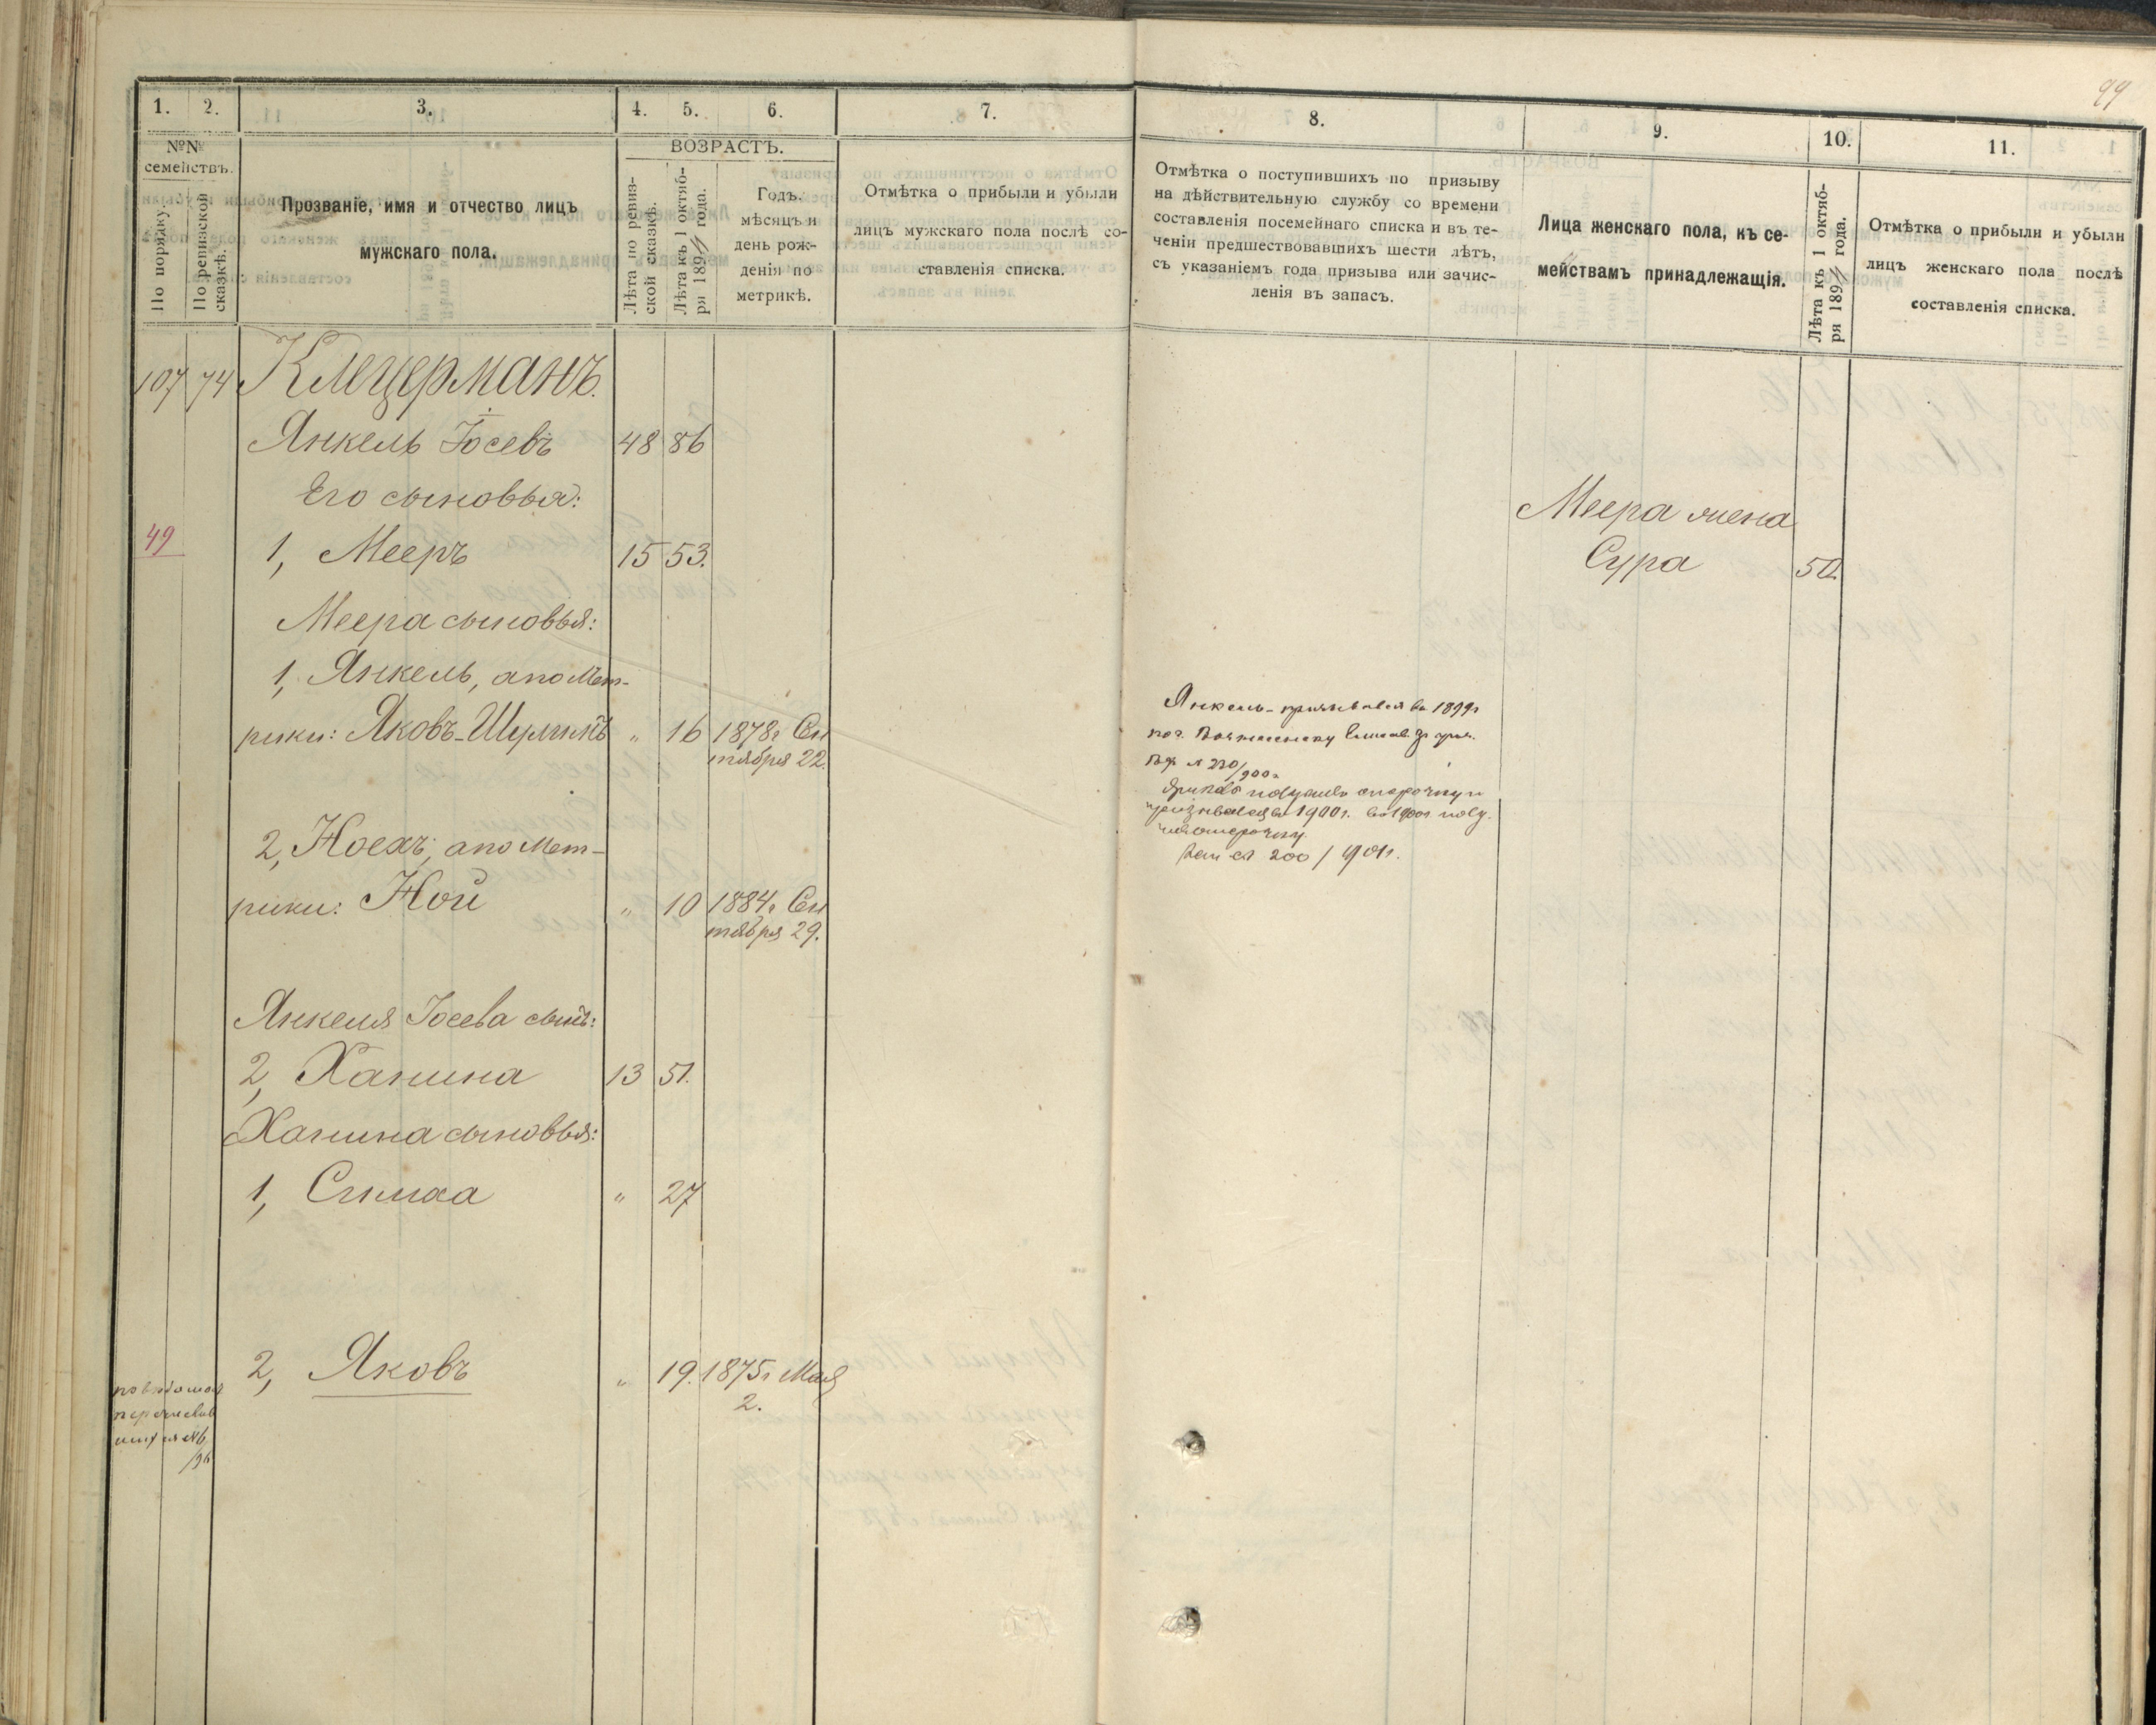 99
1.
2.
3.
4.
5.
6.
7.
8.
9.
10.
11.
№№
семействъ.
По порядку.
По ревизской
сказкѣ.
Прозваніе, имя и отчество лицъ
мужскаго пола.
ВОЗРАСТЪ.
Лѣта по ревиз-
ской сказкѣ.
Лѣта къ 1 октяб-
ря 1894 года.
Годъ,
мѣсяцъ и
день рож-
денія по
метрикѣ.
Отмѣтка о прибыли и убыли
лицъ мужскаго пола послѣ со-
ставленія списка.
Отмѣтка о поступившихъ по призыву
на дѣйствительную службу со времени
составленія посемейнаго списка и въ те-
ченіи предшествовавшихъ шести лѣтъ,
съ указаніемъ года призыва или зачис-
ленія въ запасъ.
Лица женскаго пола, къ се-
мействамъ принадлежащія.
Лѣта къ 1 октяб-
ря 1894 года.
Отмѣтка о прибыли и убыли
лицъ женскаго пола послѣ
составленія списка.
107 74 Клецерманъ.
Янкель Іосевъ 48 86
Его сыновья:
49 1, Мееръ 15 53.
Меера жена
Сура 50.
Меера сыновья:
1, Янкель, а по Мет-
рики: Яковъ-Шулимъ " 16 1878г Сен
тября 22.
Янкель призывался въ 1899г
№ 220/900г
получилъ отсрочку и
призывался въ 1900г. въ 1900г. полу-
чилъ отсрочку
200 / 901г.
2, Ноехъ, а по Мет-
рики: Ной " 10 1884г Сен
тября 29.
Янкеля Іосева сынъ:
2, Ханина 13 51.
Ханина сыновья:
1, Симха " 27
2, Яковъ " 19. 1875г Мая
2.